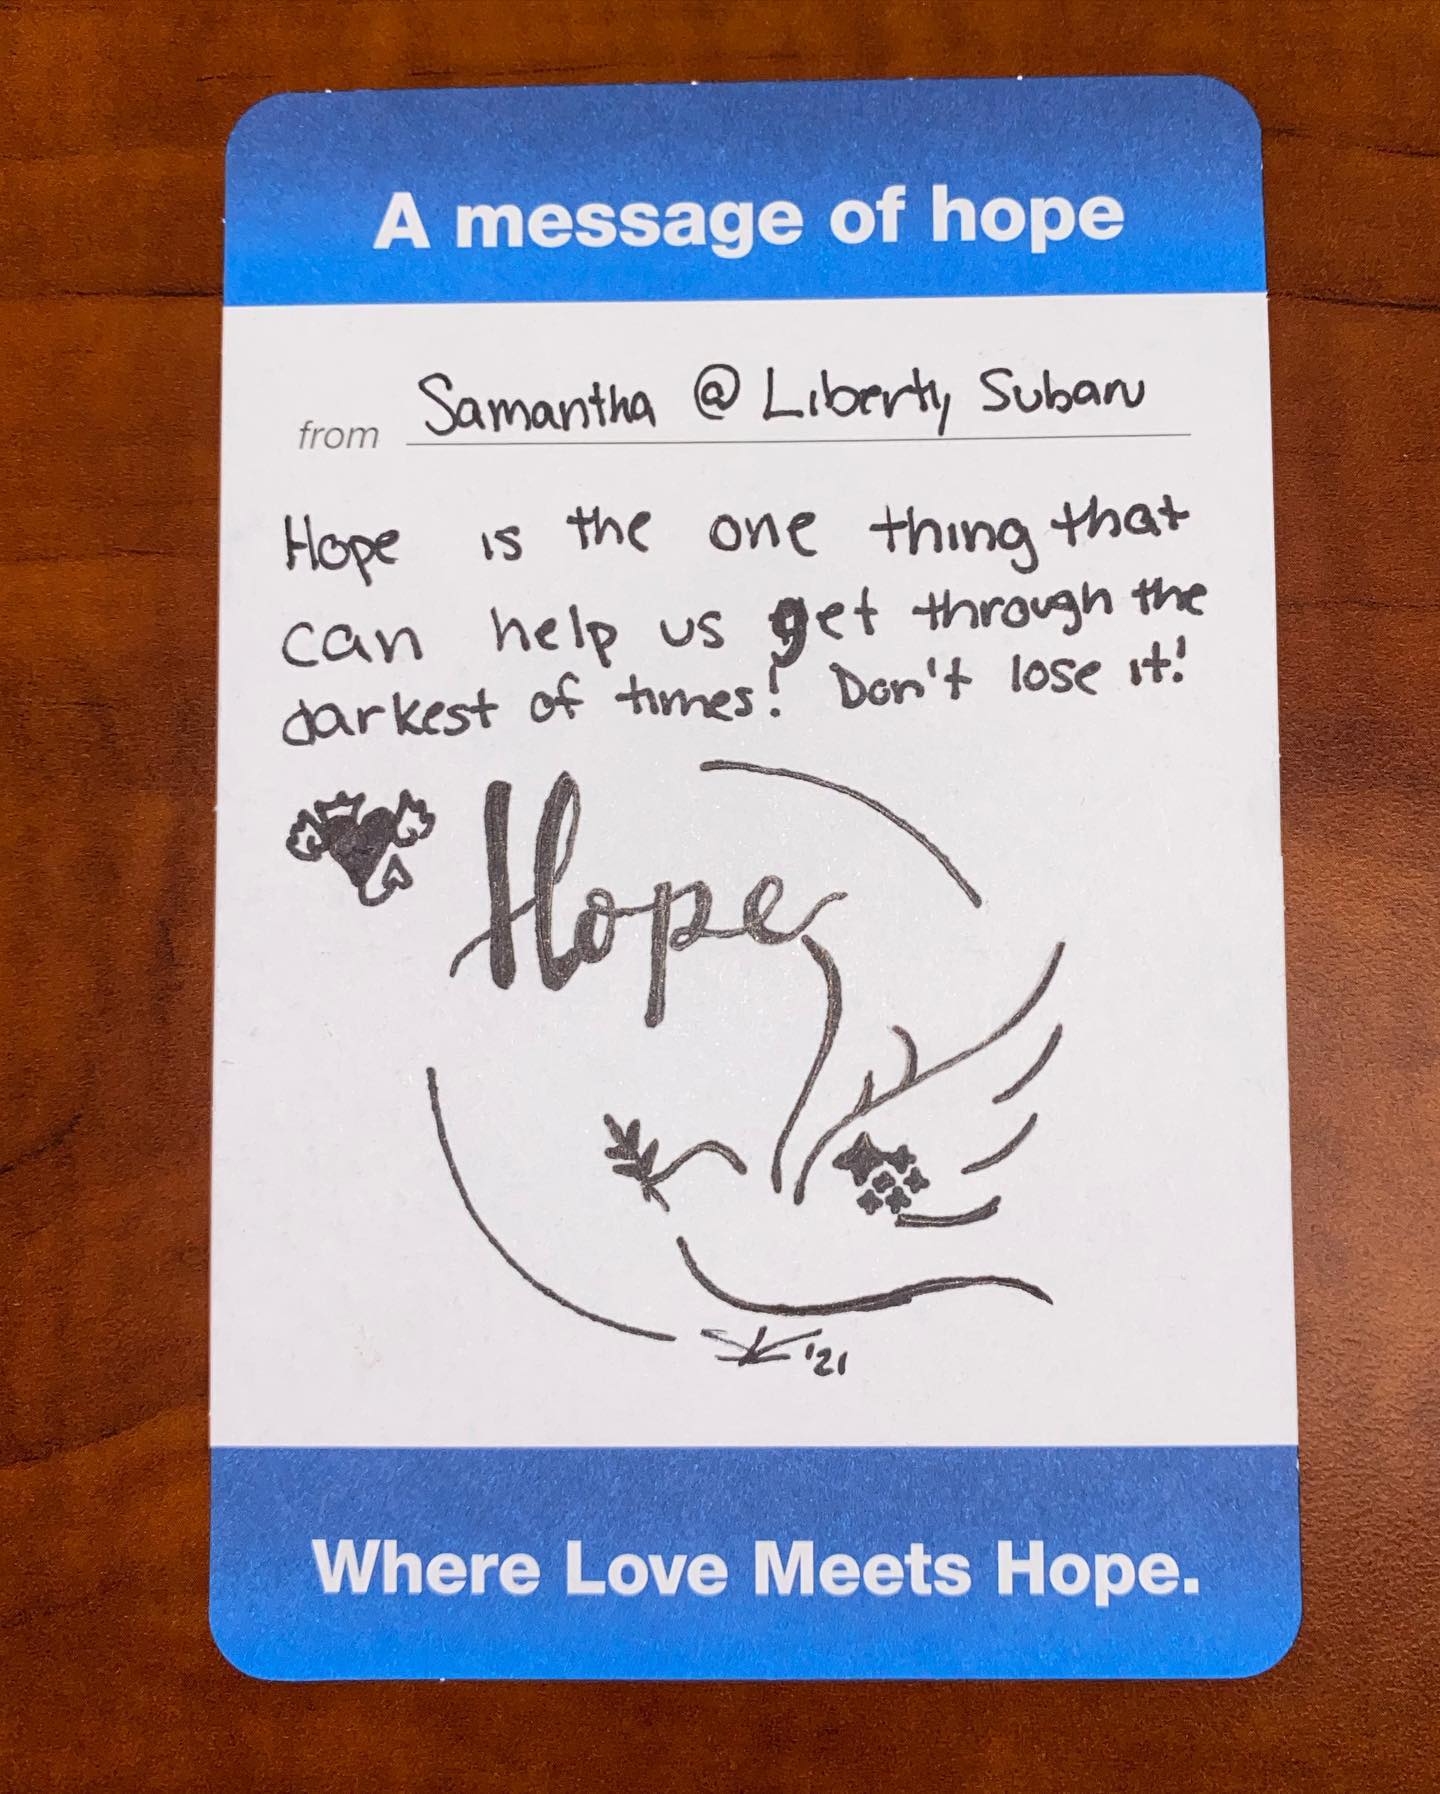 A message of hope
from Samantha @ Liberty Subaru
Hope is the one thing that
can help us get through the
darkest of times! Don't lose it!
Hope
'21
Where Love Meets Hope.